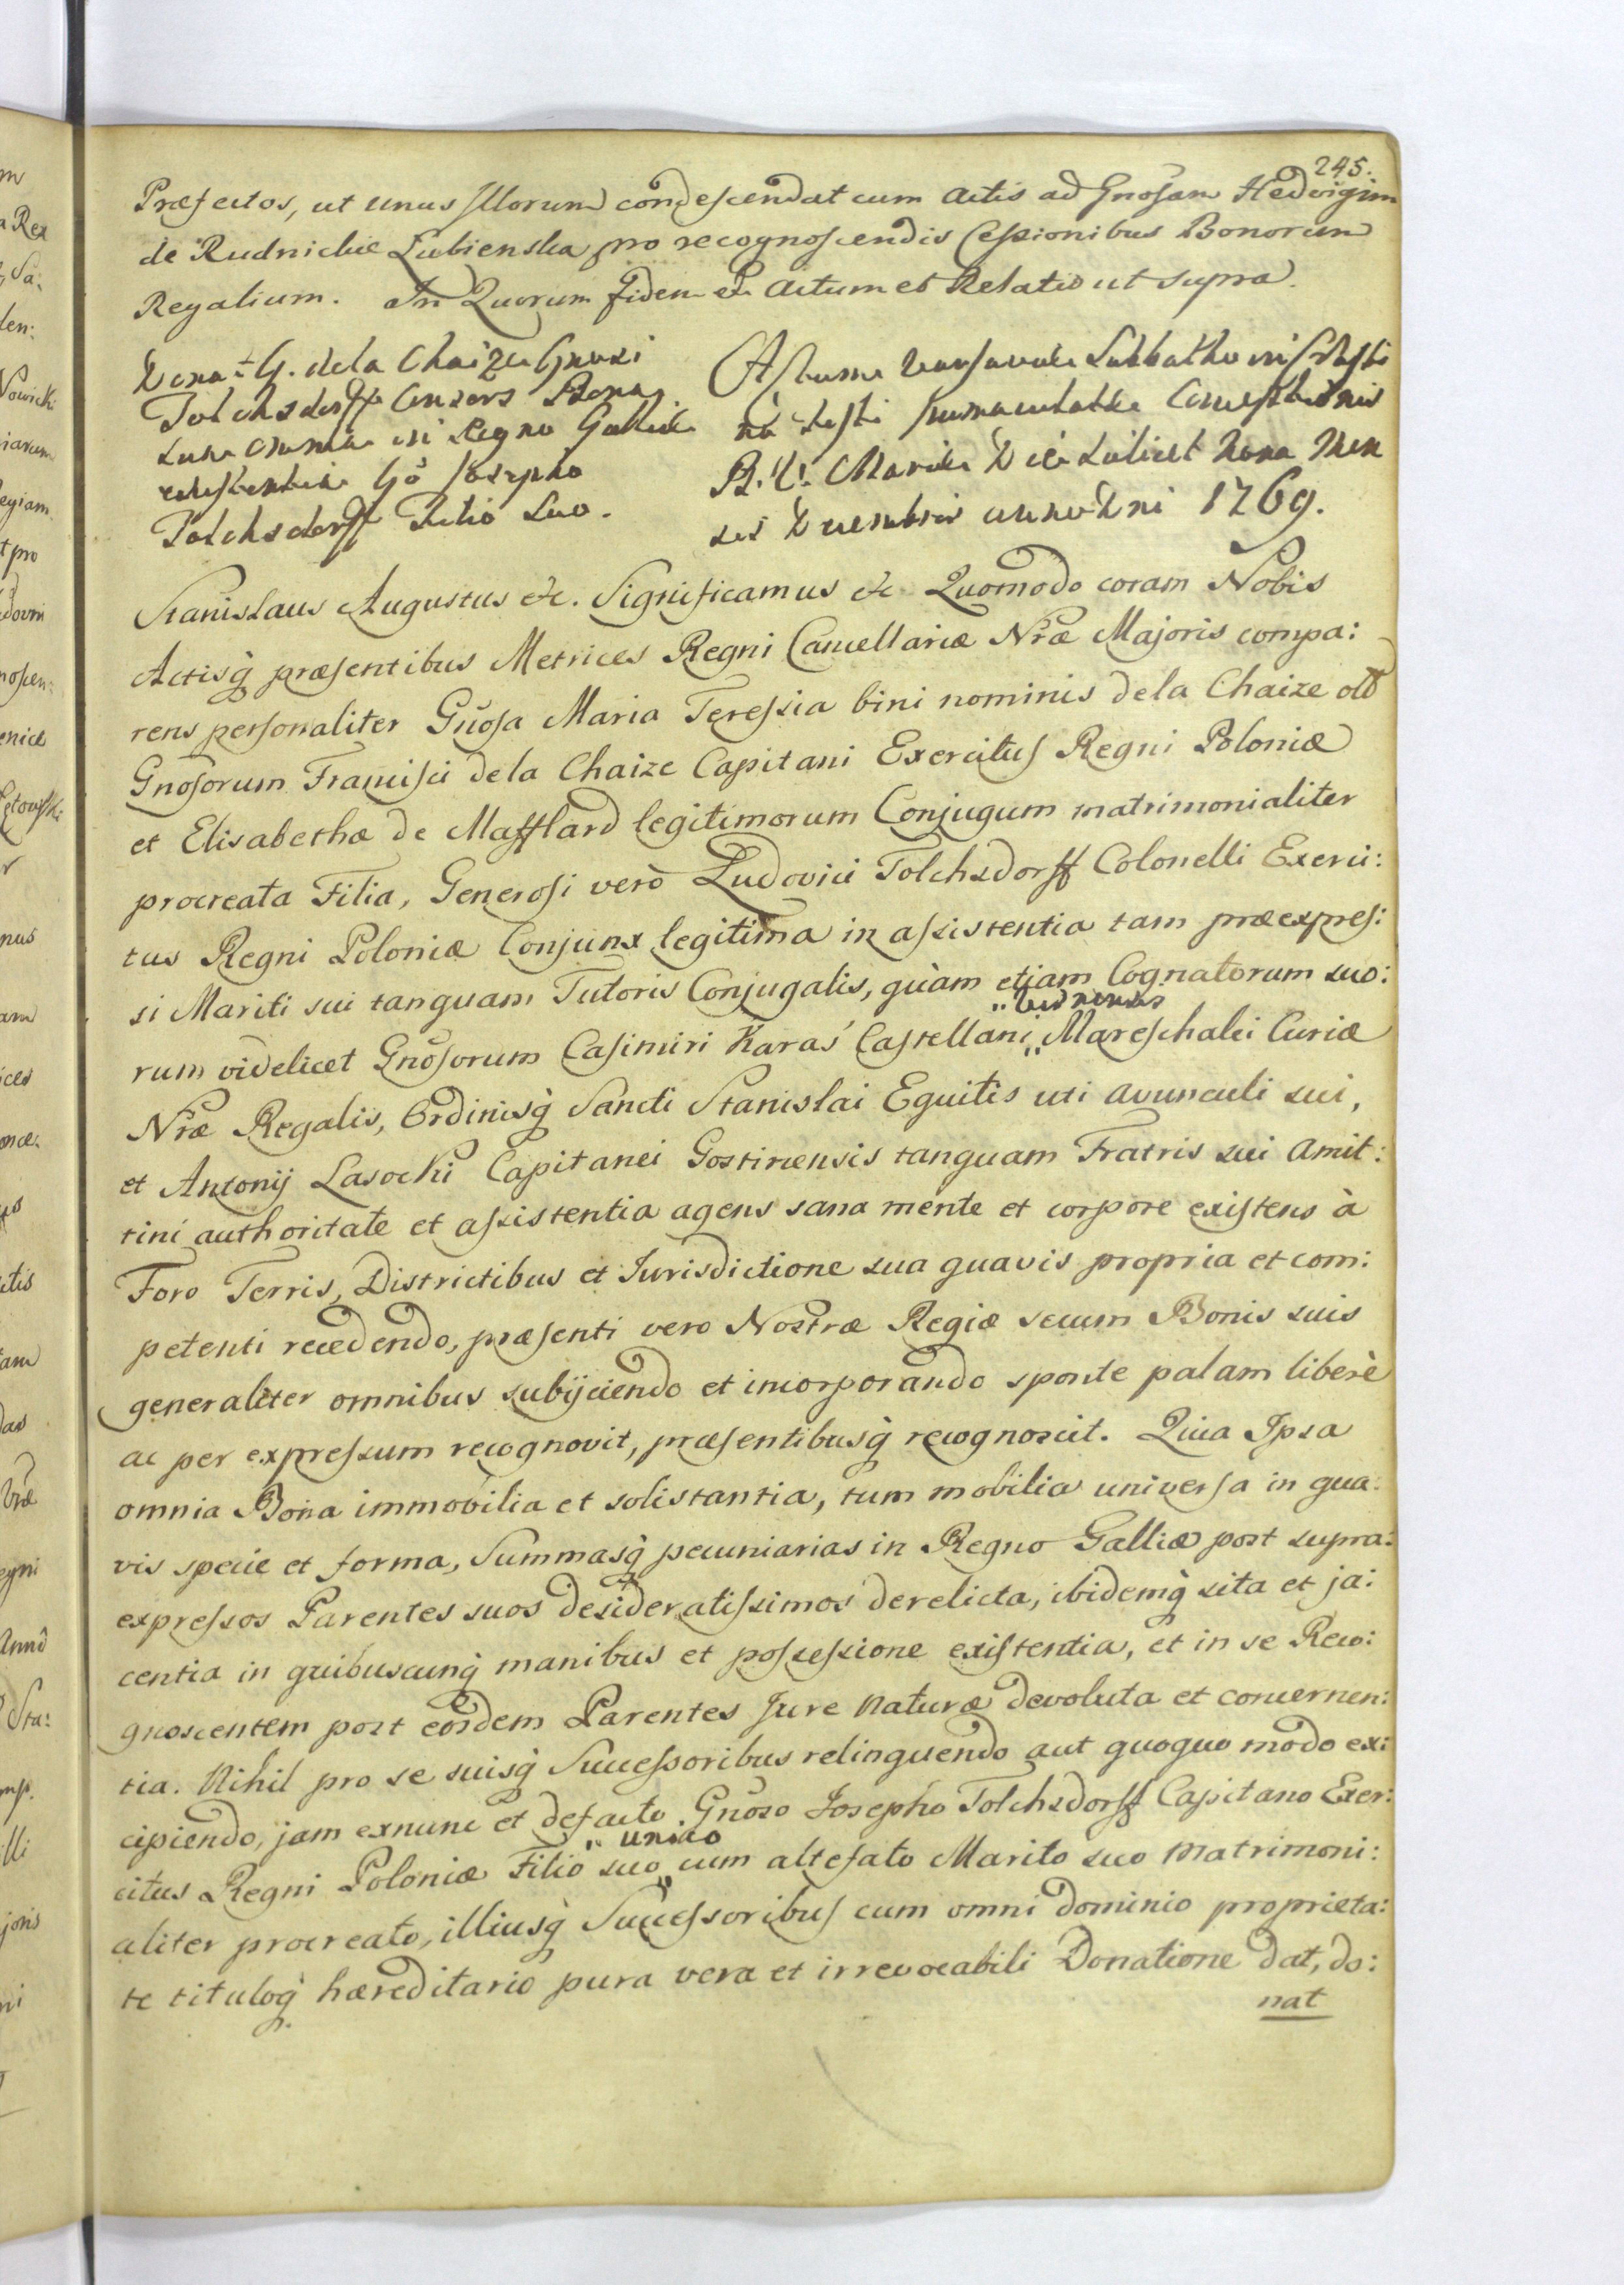 245.
Præfectos, ut unus Illorum condescendat cum Actis ad Gnosam Hedvigim
de Rudnickie Lubienska pro recognoscendis Cessionibus Bonorum
Regalium. In Quorum fidem etc Actum et Relatio ut supra.
Dona: G. de la Chaize Gnrosi
Tolchsdorff Consors Bona
sua omnia in Regno Galliæ
existentia Gō Josepho
Tolchsdorff Filiō Suo.
Actum Varsaviæ Sabbatho in Crasti
nō Festi Immaculatæ Conceptionis
B. V. Mariæ Die scilicet Nona Men
sis Decembris anno Dni 1769.
Stanislaus Augustus etc. Significamus etc Quomodo coram Nobis
Actisq́ præsentibus Metrices Regni Cancellariæ Nræ Majoris compa:
rens personaliter Gnosa Maria Teressia bini nominis de la Chaize olō
Gnosorum Francisci de la Chaize Capitani Exercitus Regni Poloniæ
et Elisabethæ de Mafflard legitimorum Conjugum matrimonialiter
procreata Filia, Generosi verò Ludovici Tolchsdorff Colonelli Exerci:
tus Regni Poloniæ Conjunx legitima in assistentia tam præexpres:
si Mariti sui tanquam Tutoris Conjugalis, quàm etiam Cognatorum suo:
rum videlicet Gnosorum Casimiri Karaś Castellani „ Mareschalci Curiæ
Nræ Regalis, Ordinisq́ Sancti Stanislai Equitis uti avunculi sui,
et Antonij Lasocki Capitanei Gostinensis tanquam Fratris sui amit:
tini authoritate et assistentia agens sana mente et corpore existens à
Foro Terris, Districtibus et Jurisdictione sua quavis propria et com:
petenti recedendo, præsenti vero Nostræ Regiæ secum Bonis suis
generaliter omnibus subijciendo et incorporando sponte palam liberè
ac per expressum recognovit, præsentibusq́ recognoscit. Quia Ipsa
omnia Bona immobilia et solistantia, tum mobilia universa in qua:
vis specie et forma, Summasq́ pecuniarias in Regno Galliæ post supra:
expressos Parentes suos desideratissimos derelicta, ibidemq́ sita et ja:
centia in quibuscunq́ manibus et possessione existentia, et in se Reco:
gnoscentem post eosdem Parentes Jure naturæ devoluta et concernen:
tia. Nihil pro se suisq́ Successoribus relinquendo aut quoquo modo ex:
cipiendo, jam exnunc et defacto Gnoso Josepho Tolchsdorff Capitano Exer:
citus Regni Poloniæ Filio suo „ unico cum altefato Marito suo matrimoni:
aliter procreato, illiusq́ Successoribus cum omni dominio proprieta:
te tituloq́ hæreditario pura vera et irrevocabili Donatione dat, do:
nat